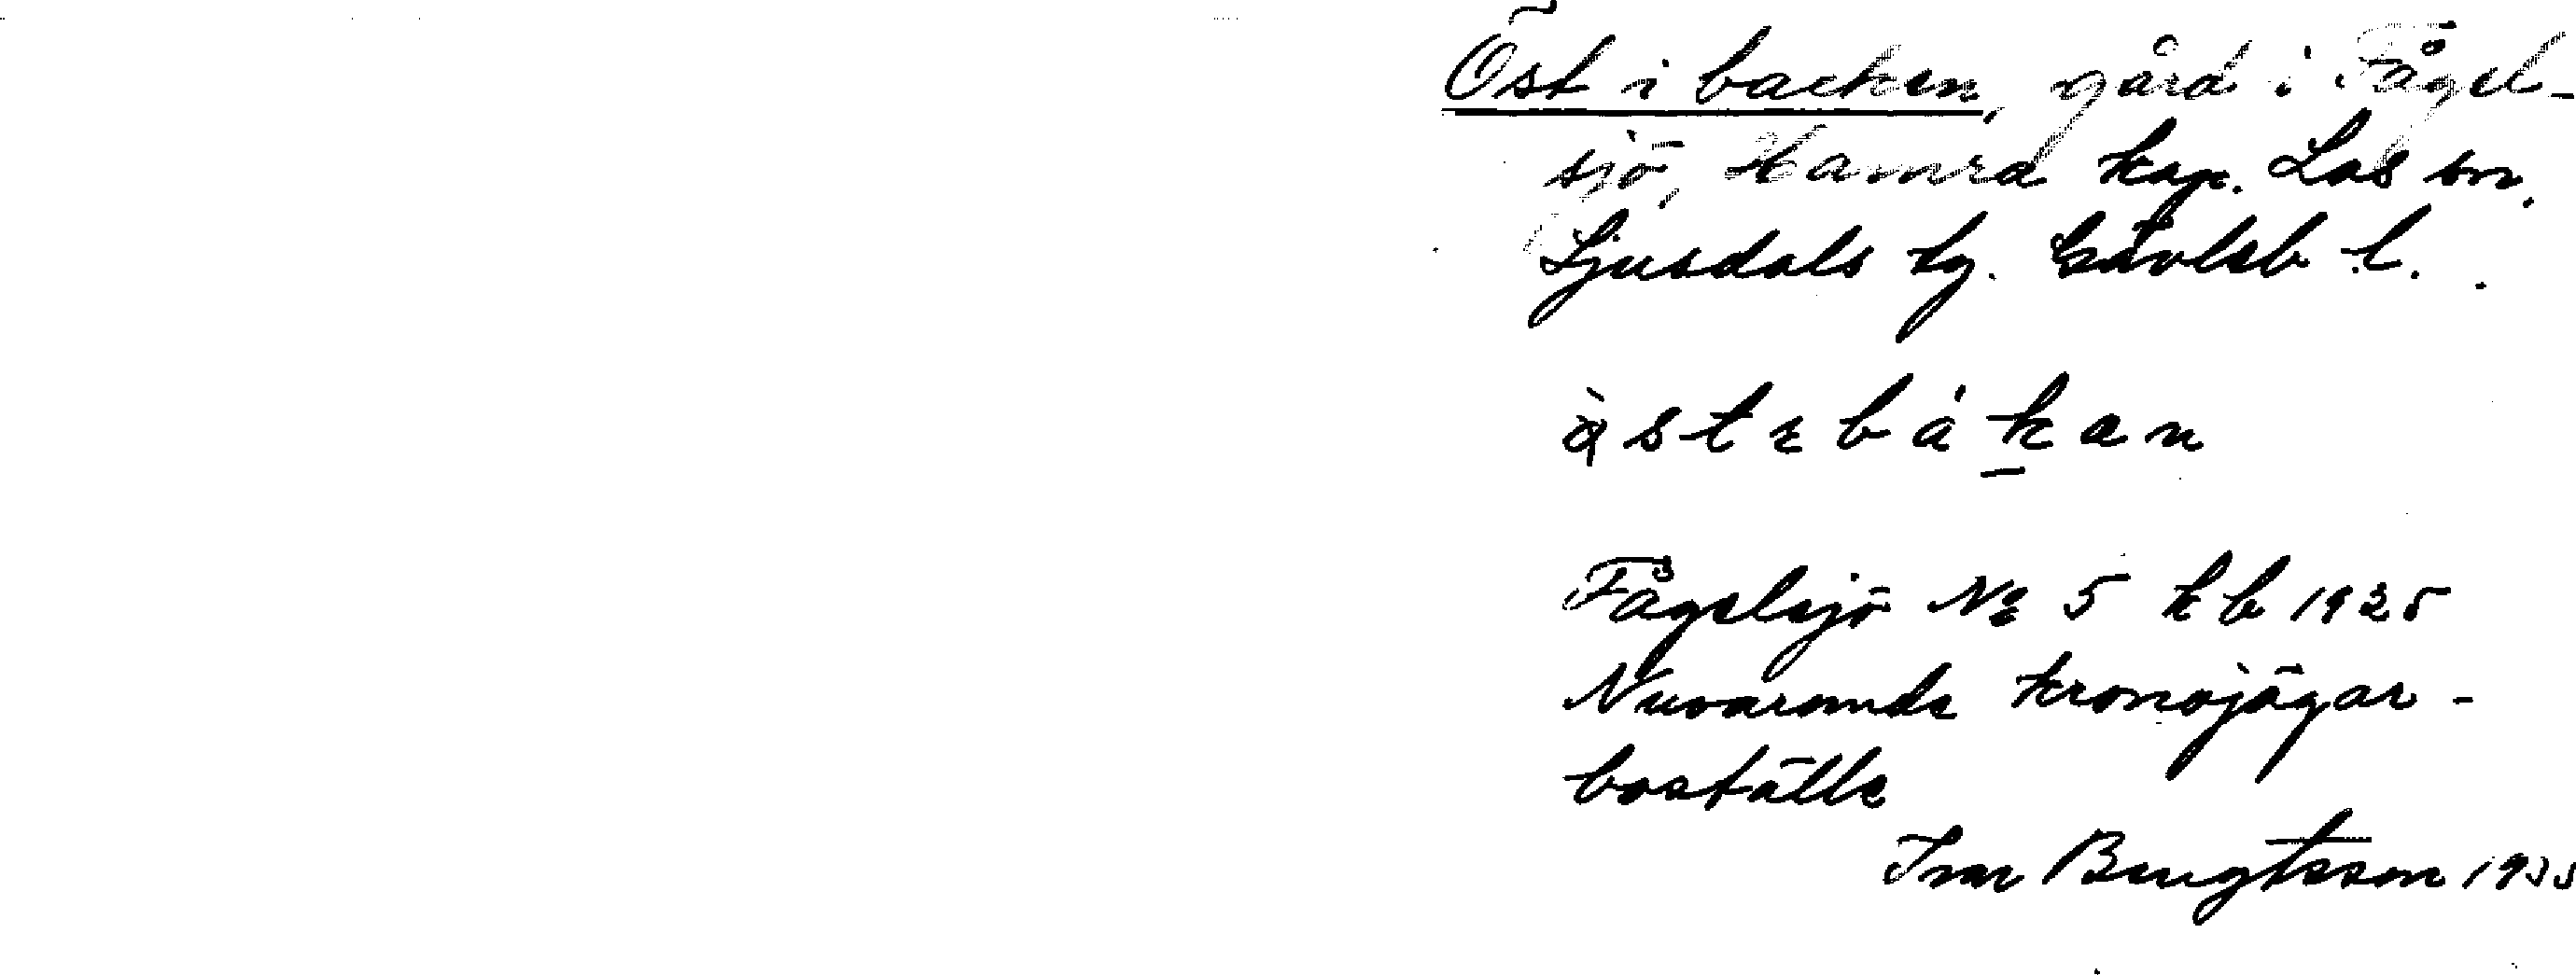 Öst i backen, gård i Fågel-
sjö, Hamra kap. Los sn,
Ljusdals tg. Gävleb l.
ö̀stebákan
Fågelsjö No 5 kb 1925
Nuvarande kronojägar-
boställe
Ivar Bengtsson 1935